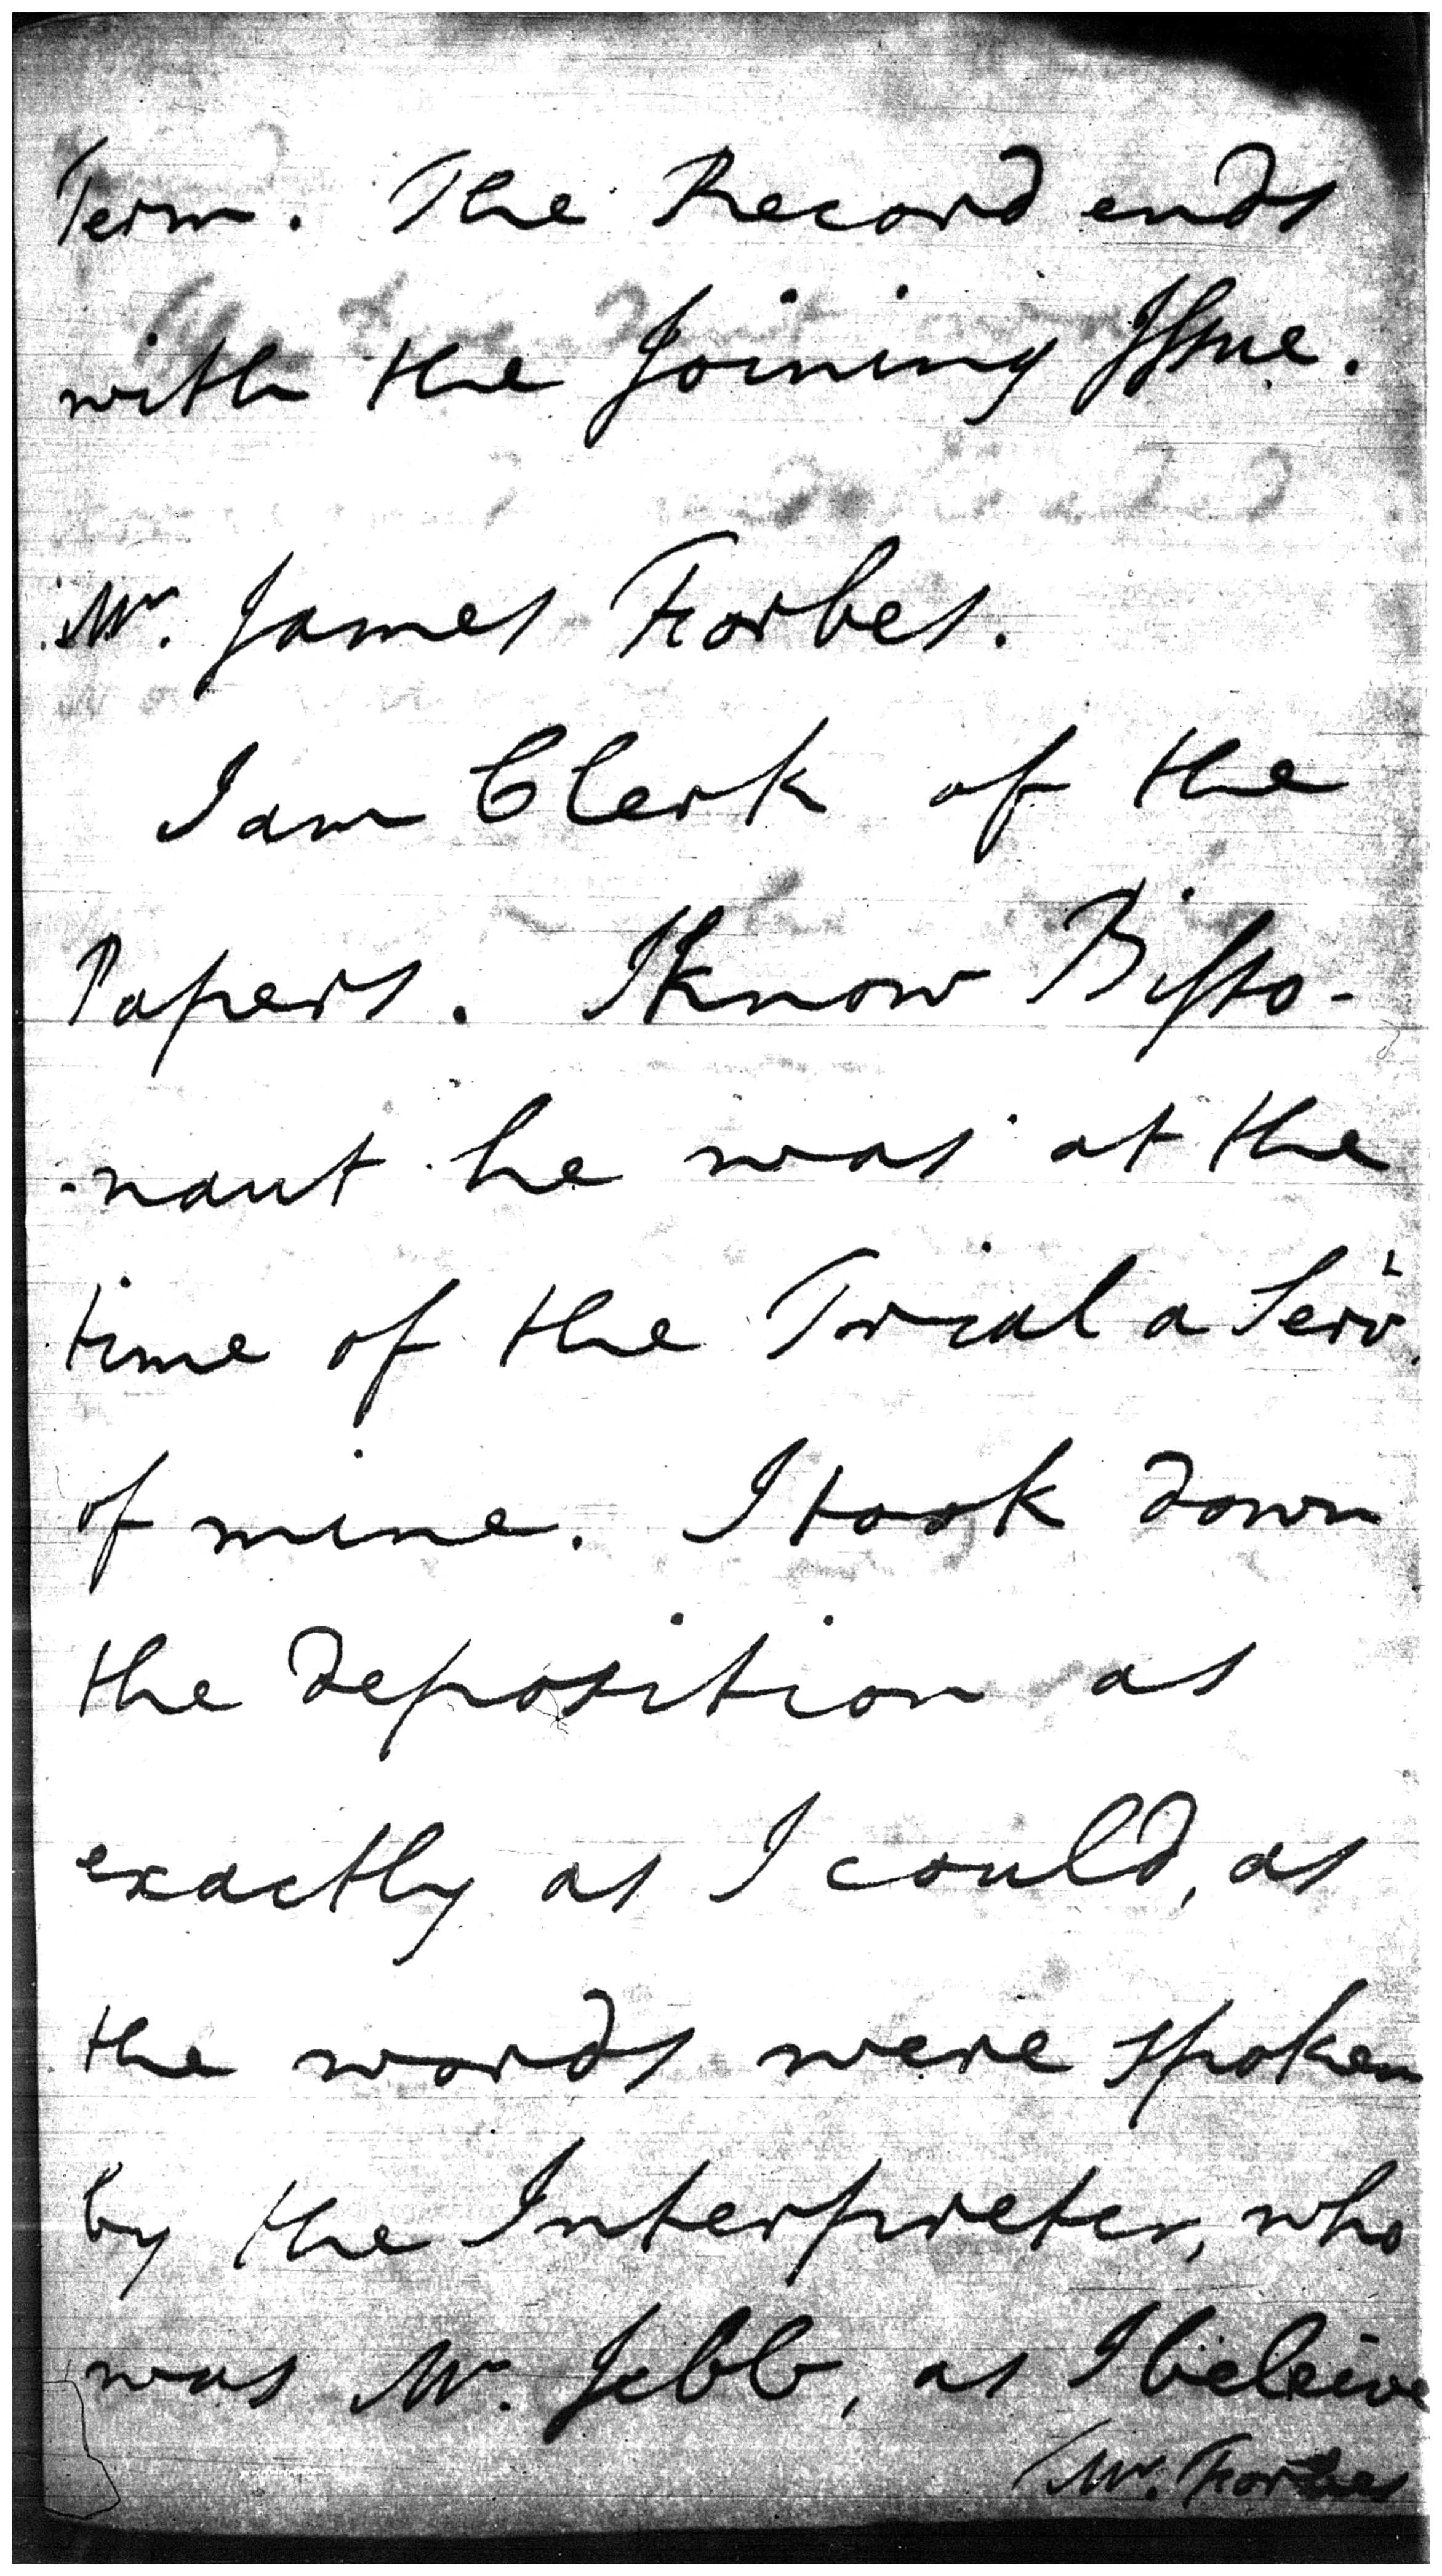 Term. The Record ends
with the Joining Issue.
Mr. James Forbes.
I am Clerk of the
Papers. I know Bisso-
-naut he was at the
time of the Trial a Servt
of mine. I took down
the deposition as
exactly as I could, as
the words were spoken
by the Interpreter, who
was Mr. Jebb, as I beleive
(Mr. Forbes